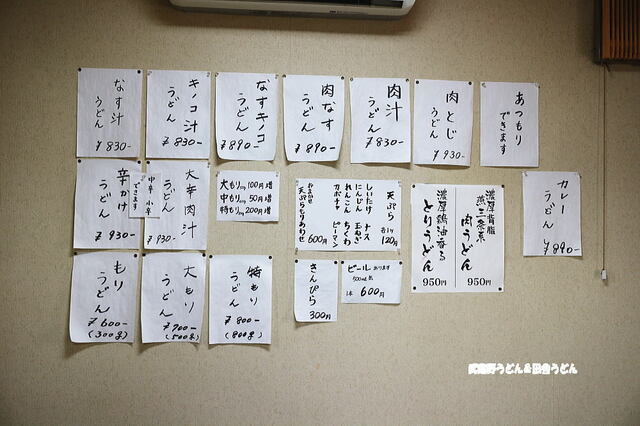 なす汁
うどん
¥830-
キノコ汁
うどん
¥830-
なすキノコ
うどん
¥890-
肉なす
うどん
¥890-
肉汁
うどん
¥830-
肉とじ
うどん
¥930-
あつもり
できます
辛かけ
うどん
¥930-
中辛 小辛
できます
大辛肉汁
うどん
¥930-
大もり 100円増
中もり 50円増
特もり 200円増
天ぷら
1ケ 120円
しいたけ ナス
にんじん 玉ねぎ
れんこん ちくわ
カボチャ ピーマン
おまかせ
天ぷらもりあわせ
600円
濃厚背脂
燕三条系
肉うどん
950円
濃厚鶏油香る
とりうどん
950円
カレー
うどん
¥890-
もり
うどん
¥600-
(300g)
大もり
うどん
¥700-
(500g)
特もり
うどん
¥800-
(800g)
きんぴら
300円
ビールあります
500ml缶
1本 600円
武蔵野うどん&田舎うどん